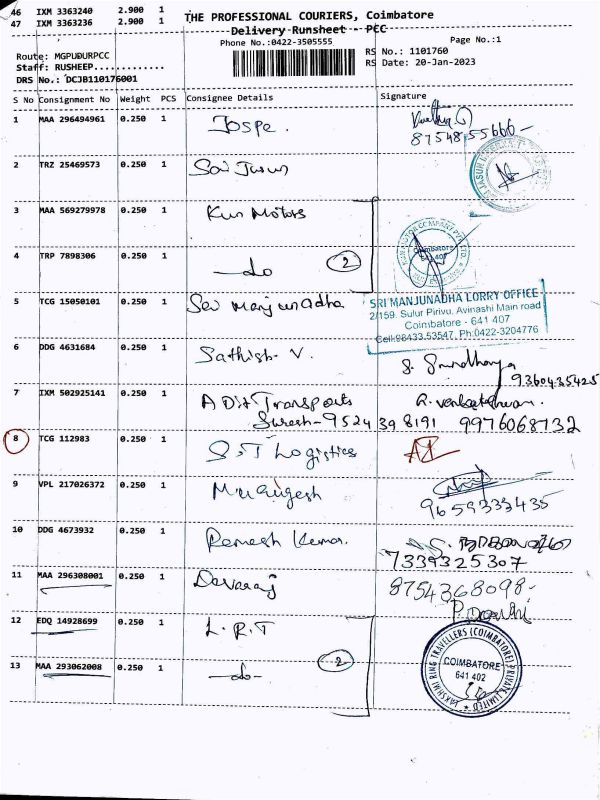 46 IXM 3363240 2.900 1
47 IXM 3363236 2.900 1
THE PROFESSIONAL COURIERS, Coimbatore
Delivery Runsheet - PCC
Phone No.:0422-3505555 Page No.:1
Route: MGPUDURPCC RS No.: 1101760
Staff: RUSHEEP............. RS Date: 20-Jan-2023
DRS No.: DCJB110176001
S No Consignment No Weight PCS Consignee Details Signature
1 MAA 296494961 0.250 1 Jospe.
87548 55666
2 TRZ 25469573 0.250 1 Sai
3 MAA 569279978 0.250 1 Kun Motors
4 TRP 7898306 0.250 1 -do 2
Coimbatore
641 407
5 TCG 15050101 0.250 1 Sri manjunadha
SRI MANJUNADHA LORRY OFFICE
2/159. Sulur Pirivu, Avinashi Main road
Coimbatore - 641 407
Cell:98433.53547, Ph:0422-3204776
6 DDG 4631684 0.250 1 Sathish. V.
9360435425
7 IXM 502925141 0.250 1 A Dit Transports R. Venkateshwaran
Suresh-9524398191 9976068732
8 TCG 112983 0.250 1 S.T Logistics
9 VPL 217026372 0.250 1 Murugesh
9659333435
10 DDG 4673932 0.250 1 Remesh Kumar.
7339325307
11 MAA 296308001 0.250 1 Devaraj 8754368098-
12 EDQ 14928699 0.250 1 L.R.T
13 MAA 293062008 0.250 1 -do- 2
LAKSHMI RING TRAVELLERS (COIMBATORE) PRIVATE LIMITED
COIMBATORE
641 402